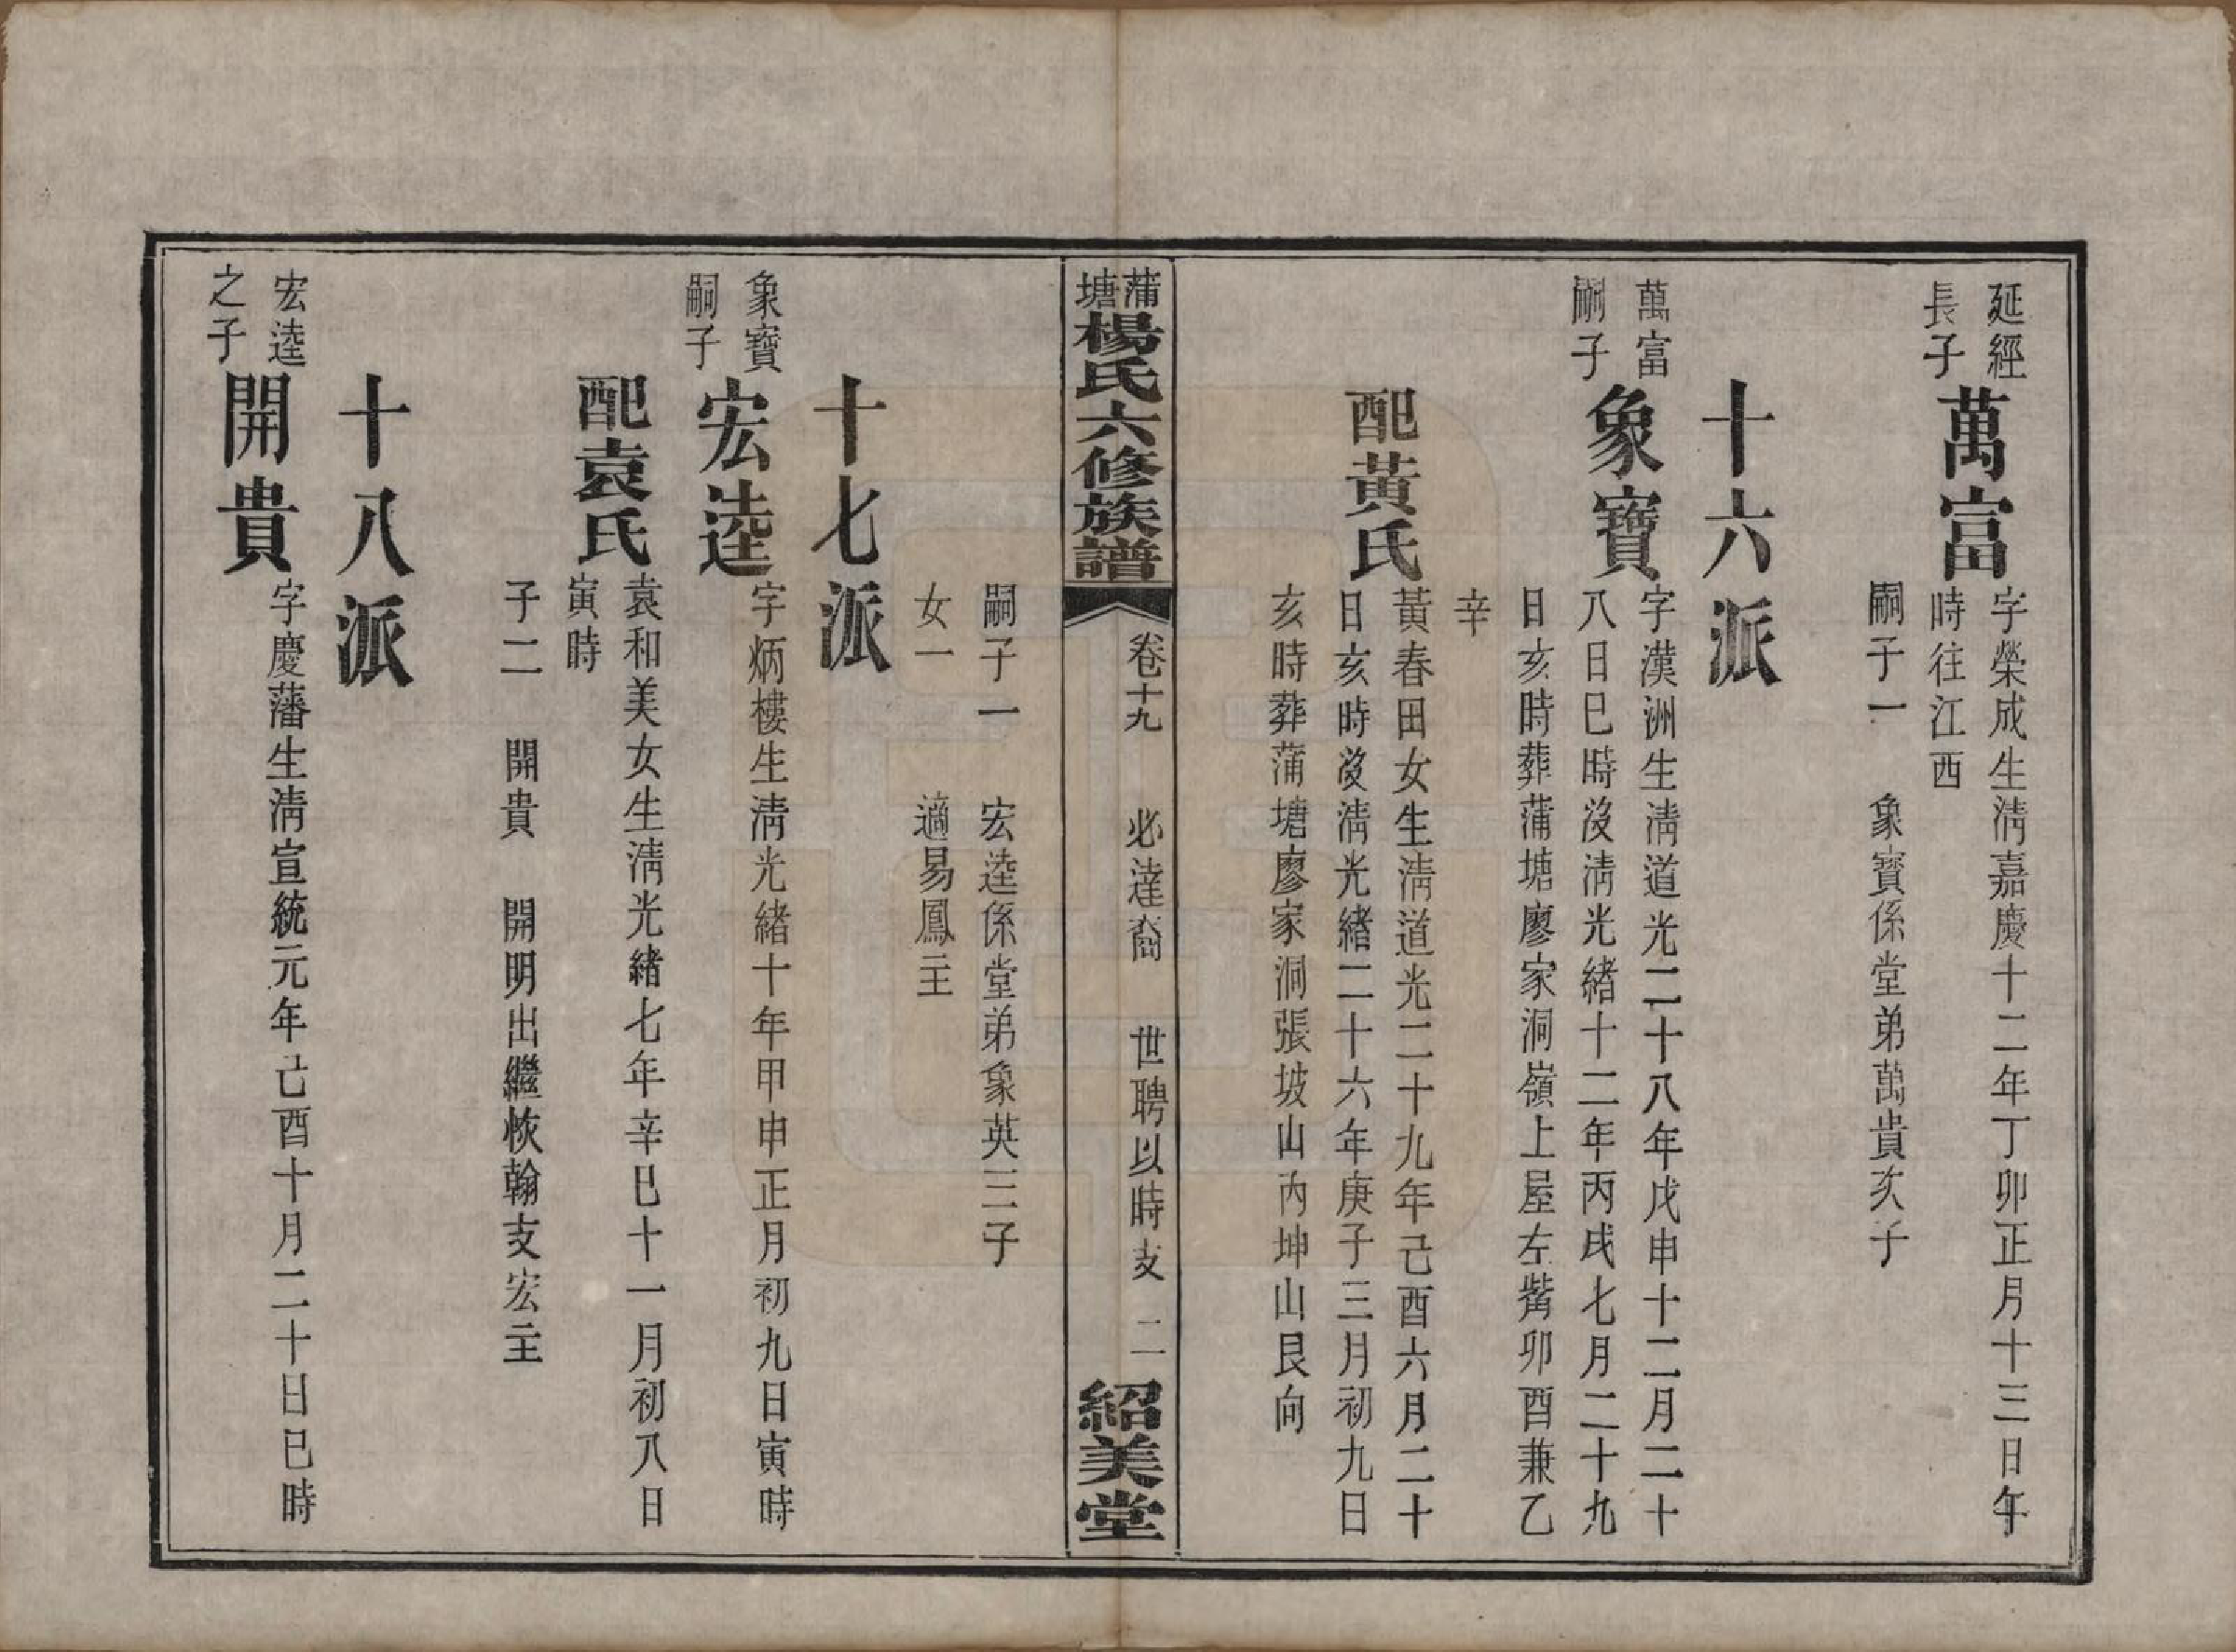 延經
長子
萬富
字榮成生淸嘉慶十二年丁卯正月十三日午
時往江西
嗣子一　象寶係堂弟萬貴次子
十六派
萬富
嗣子
象寶
字漢洲生淸道光二十八年戊申十二月二十
八日巳時沒淸光緒十二年丙戌七月二十九
日亥時葬蒲塘廖家洞嶺上屋左嘴卯酉兼乙
辛
配黃氏
黃春田女生淸道光二十九年己酉六月二十
日亥時沒淸光緒二十六年庚子三月初九日
亥時葬蒲塘廖家洞張坡山內坤山艮向
蒲塘楊氏六修族譜
卷十九　必達裔　世聘以時支　二
紹美堂
嗣子一　宏逵係堂弟象英三子
女一　適易鳳主
十七派
象寶
嗣子
宏逵
字炳樓生淸光緒十年甲申正月初九日寅時
配袁氏
袁和美女生淸光緒七年辛巳十一月初八日
寅時
子二　開貴　開明出繼恢翰支宏主
十八派
宏逵
之子
開貴
字慶藩生淸宣統元年己酉十月二十日巳時